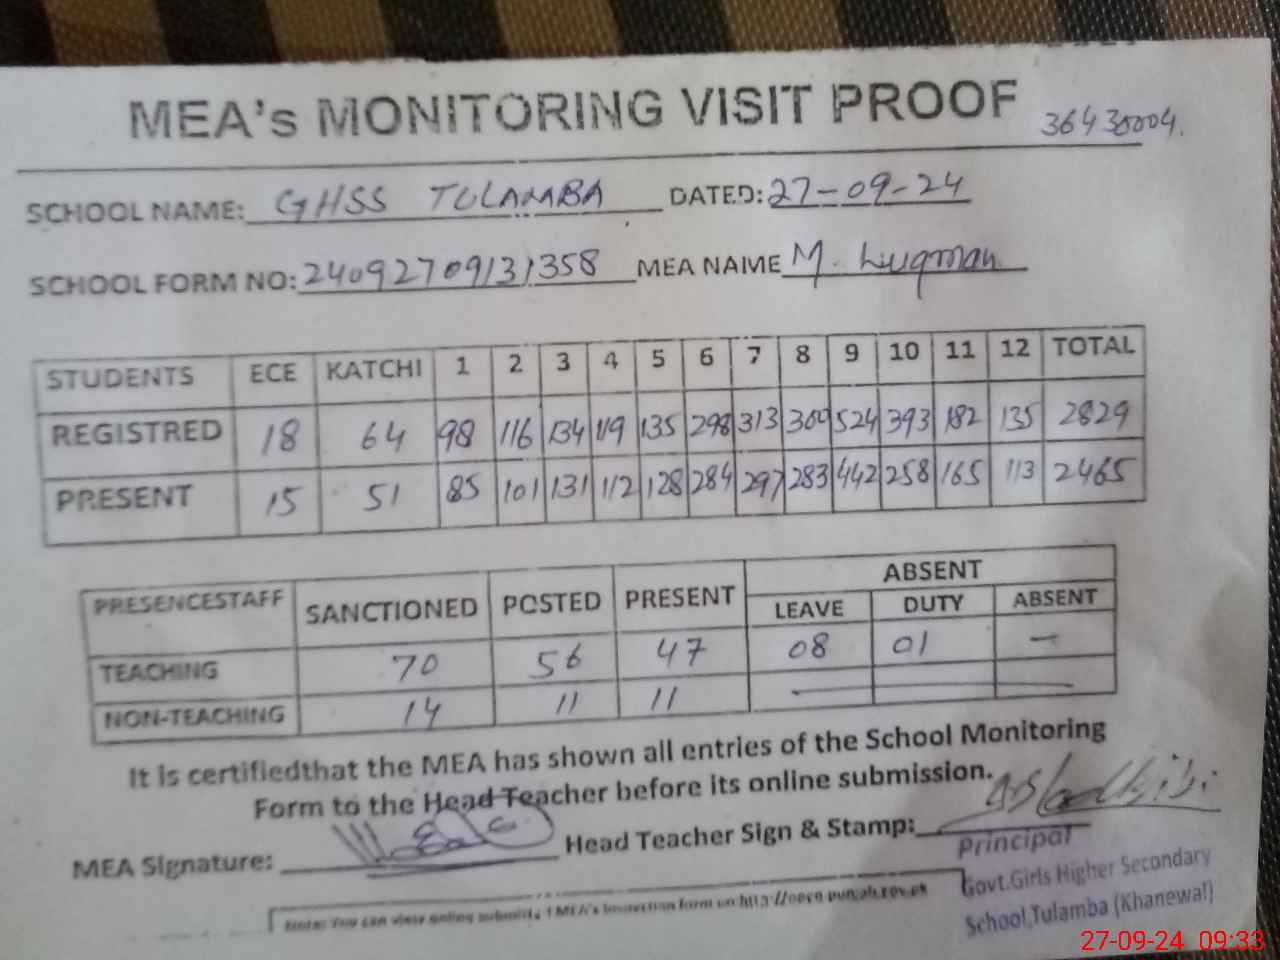 MEA's MONITORING VISIT PROOF 36430004.
SCHOOL NAME: GHSS TULAMBA DATED: 27-09-24
SCHOOL FORM NO: 24092709131358 MEA NAME M. Luqman
STUDENTS ECE KATCHI 1 2 3 4 5 6 7 8 9 10 11 12 TOTAL
REGISTRED 18 64 98 116 134 119 135 298 313 300 524 393 182 135 2829
PRESENT 15 51 85 101 131 112 128 284 297 283 442 258 165 113 2465
ABSENT
PRESENCESTAFF SANCTIONED POSTED PRESENT LEAVE DUTY ABSENT
TEACHING 70 56 47 08 01 —
NON-TEACHING 14 11 11 —
It is certifiedthat the MEA has shown all entries of the School Monitoring
Form to the Head Teacher before its online submission.
MEA Signature: Head Teacher Sign & Stamp:
Principal
Govt.Girls Higher Secondary
School,Tulamba (Khanewal)
Note: You can view online MEA's Inspection form on http://open.punjab.gov.pk
27-09-24 09:33